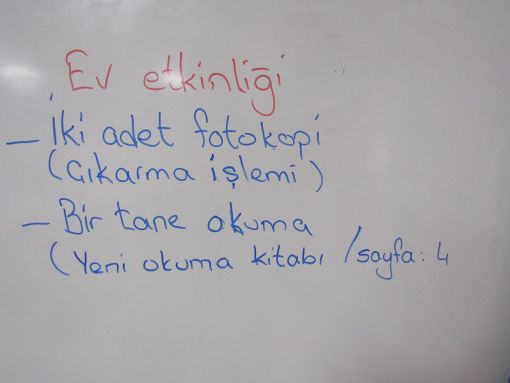 Ev etkinliği
- İki adet fotokopi
(Çıkarma işlemi)
- Bir tane okuma
(Yeni okuma kitabı /sayfa: 4